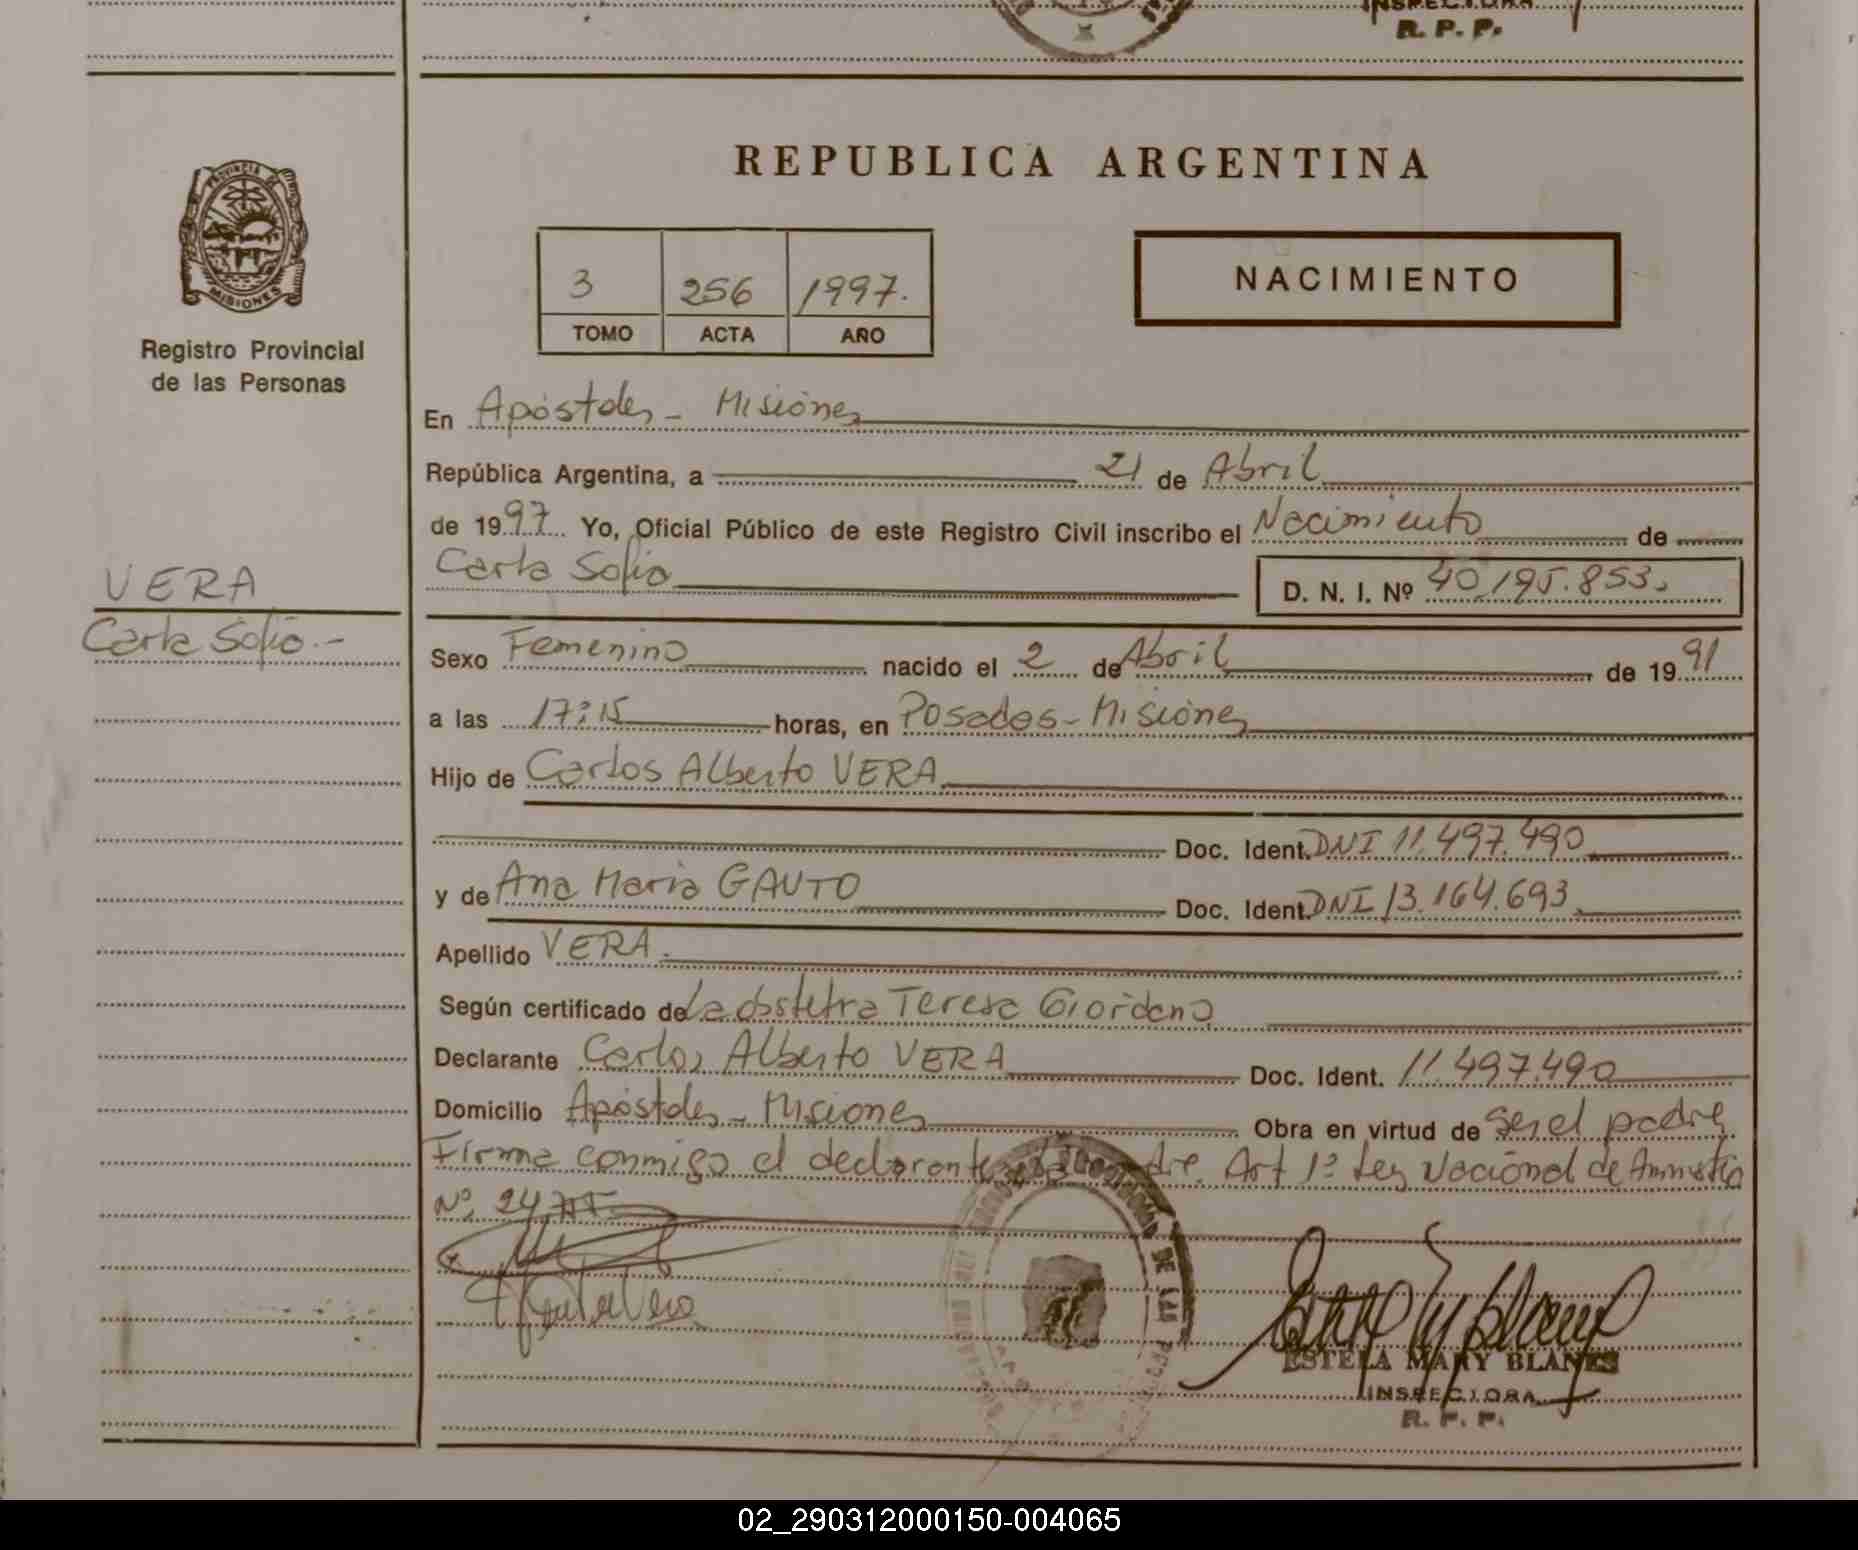 INSPECTORA
R. P. P.
PROVINCIA DE
MISIONES
Registro Provincial
de las Personas
REPUBLICA ARGENTINA
3 256 1997.
TOMO ACTA AÑO
NACIMIENTO
En Apóstoles - Misiones
República Argentina, a 21 de Abril
de 1997 Yo, Oficial Público de este Registro Civil inscribo el Nacimiento de
Carla Sofia D. N. I. Nº 40.195.853.
VERA
Carla Sofia.-
Sexo Femenino nacido el 2 de Abril de 1991
a las 17:15 horas, en Posadas - Misiones
Hijo de Carlos Alberto VERA
Doc. Ident. DNI 11.497.490
y de Ana Maria GAUTO Doc. Ident. DNI 13.164.693.
Apellido VERA.
Según certificado de La obstetra Teresa Giordano
Declarante Carlos Alberto VERA Doc. Ident. 11.497.490
Domicilio Apóstoles - Misiones Obra en virtud de ser el padre
Firma conmigo el declarante Art 1º Ley Nacional de Amnistia
Nº 24.
DE LAS
ESTELA MARY BLANES
INSPECTORA
R. P. P.
02_290312000150-004065